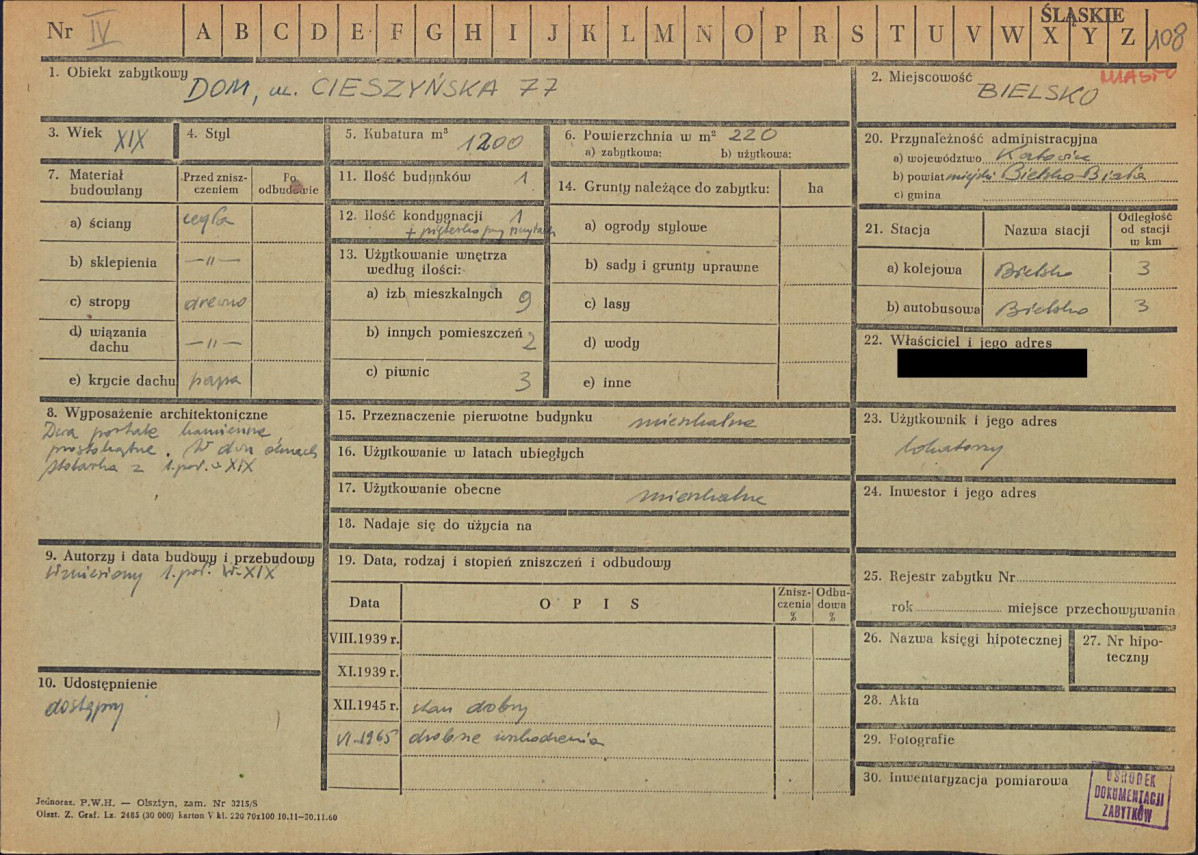 Nr IV A B C D E F G H I J K L M N O P R S T U V W X Y Z 108
ŚLĄSKIE
1. Obiekt zabytkowy DOM, ul. CIESZYŃSKA 77
2. Miejscowość BIELSKO MIASTO
3. Wiek XIX
4. Styl
5. Kubatura m³ 1200
6. Powierzchnia w m² 220
a) zabytkowa: b) użytkowa:
7. Materiał budowlany
Przed znisz-
czeniem
Po
odbudowie
a) ściany cegła
b) sklepienia —„—
c) stropy drewno
d) wiązania
dachu —„—
e) krycie dachu papa
8. Wyposażenie architektoniczne
Dwa portale kamienne
prostokątne. W dwu oknach
stolarka z 1. poł. w XIX
9. Autorzy i data budowy i przebudowy
Wzniesiony 1. poł. w. XIX
10. Udostępnienie
dostępny
11. Ilość budynków 1
12. Ilość kondygnacji 1
+ pięterko przy
13. Użytkowanie wnętrza
według ilości:
a) izb mieszkalnych 9
b) innych pomieszczeń 2
c) piwnic 3
14. Grunty należące do zabytku: ha
a) ogrody stylowe
b) sady i grunty uprawne
c) lasy
d) wody
e) inne
15. Przeznaczenie pierwotne budynku mieszkalne
16. Użytkowanie w latach ubiegłych
17. Użytkowanie obecne mieszkalne
18. Nadaje się do użycia na
19. Data, rodzaj i stopień zniszczeń i odbudowy
Data O P I S
Znisz-
czenia
%
Odbu-
dowa
%
VIII.1939 r.
XI.1939 r.
XII.1945 r. stan dobry
VI.1965 drobne uszkodzenia
20. Przynależność administracyjna
a) województwo Katowice
b) powiat miejski Bielsko Biała
c) gmina
21. Stacja Nazwa stacji
Odległość
od stacji
w km
a) kolejowa Bielsko 3
b) autobusowa Bielsko 3
22. Właściciel i jego adres
23. Użytkownik i jego adres
lokatorzy
24. Inwestor i jego adres
25. Rejestr zabytku Nr
rok miejsce przechowywania
26. Nazwa księgi hipotecznej
27. Nr hipo-
teczny
28. Akta
29. Fotografie
30. Inwentaryzacja pomiarowa
OŚRODEK
DOKUMENTACJI
ZABYTKÓW
Jednoraz. P.W.H. — Olsztyn, zam. Nr 3215/S
Olszt. Z. Graf. Lz. 2485 (30 000) karton V kl. 220 70x100 10.11—30.11.60